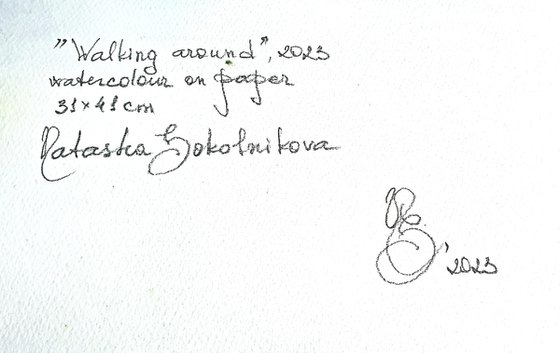 "Walking around", 2023
watercolour on paper
31×41 cm
Natasha Sokolnikova
'2023